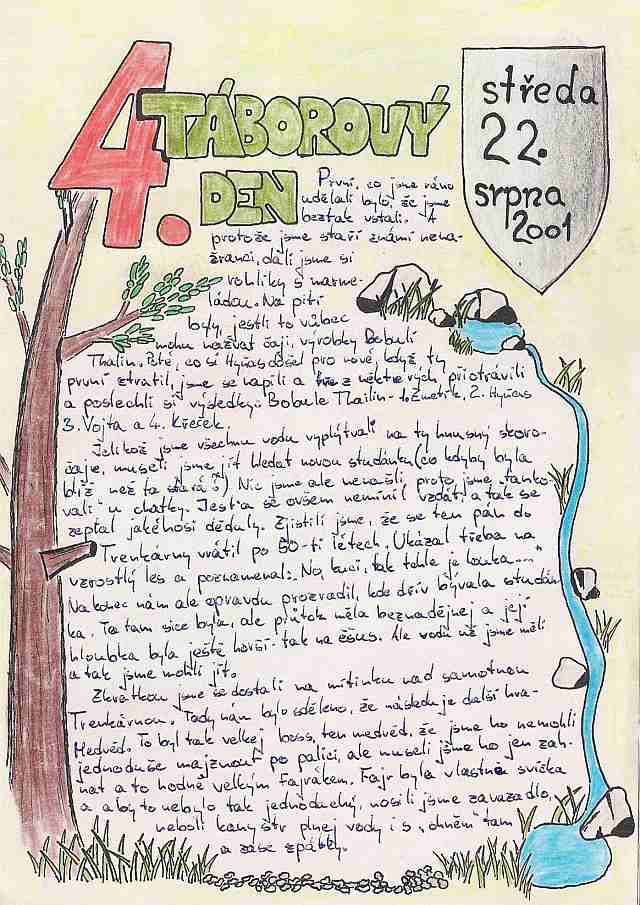 4. TÁBOROVÝ
DEN
středa
22.
srpna
2001
První, co jsme ráno
udělali bylo, že jsme
beztak vstali. A
protože jsme staří známí nena-
žranci, dali jsme si
rohlíky s marme-
ládou. Na pití
byly, jestli to vůbec
mohu nazvat čaji, výrobky Bobulí
Thailin. Poté, co si Hyňas došel pro nové, když ty
první ztratil, jsme se napili a z některých přiotrávili
a poslechli si výsledky: Bobule Thailin - 1. Zmetik, 2. Hyňas
3. Vojta a 4. Křeček.
Jelikož jsme všechnu vodu vyplýtvali na ty hnusný skoro-
čaje, museli jsme jít hledat novou studánku (co kdyby byla
blíž než ta stará?) Nic jsme ale nenašli, proto jsme "tanko-
vali" u chatky. Jest'a se ovšem nemínil vzdát, a tak se
zeptal jakéhosi děduly. Zjistili jsme, že se ten pán do
Trenkárny vrátil po 50-ti létech. Ukázal třeba na
vzrostlý les a poznamenal: "No, kluci, tak tohle je louka...."
Nakonec nám ale opravdu prozradil, kde dřív bývala studán-
ka. Ta tam sice byla, ale průtok měla beznadějnej a její
hloubka byla ještě horší - tak na ešus. Ale vodu už jsme měli
a tak jsme mohli jít.
Zkrátkou jsme se dostali na mítinku nad samotnou
Trenkárnou. Tady nám bylo sděleno, že následuje další hra -
Medvěd. To byl tak velkej boss, ten medvěd, že jsme ho nemohli
jednoduše majznout po palici, ale museli jsme ho jen zah-
nat a to hodně velkým fajrákem. Fajr byla vlastně svíčka
a aby to nebylo tak jednoduchý, nosili jsme zavazadlo,
neboli kanystr plnej vody i s "ohněm" tam
a zase zpátky.